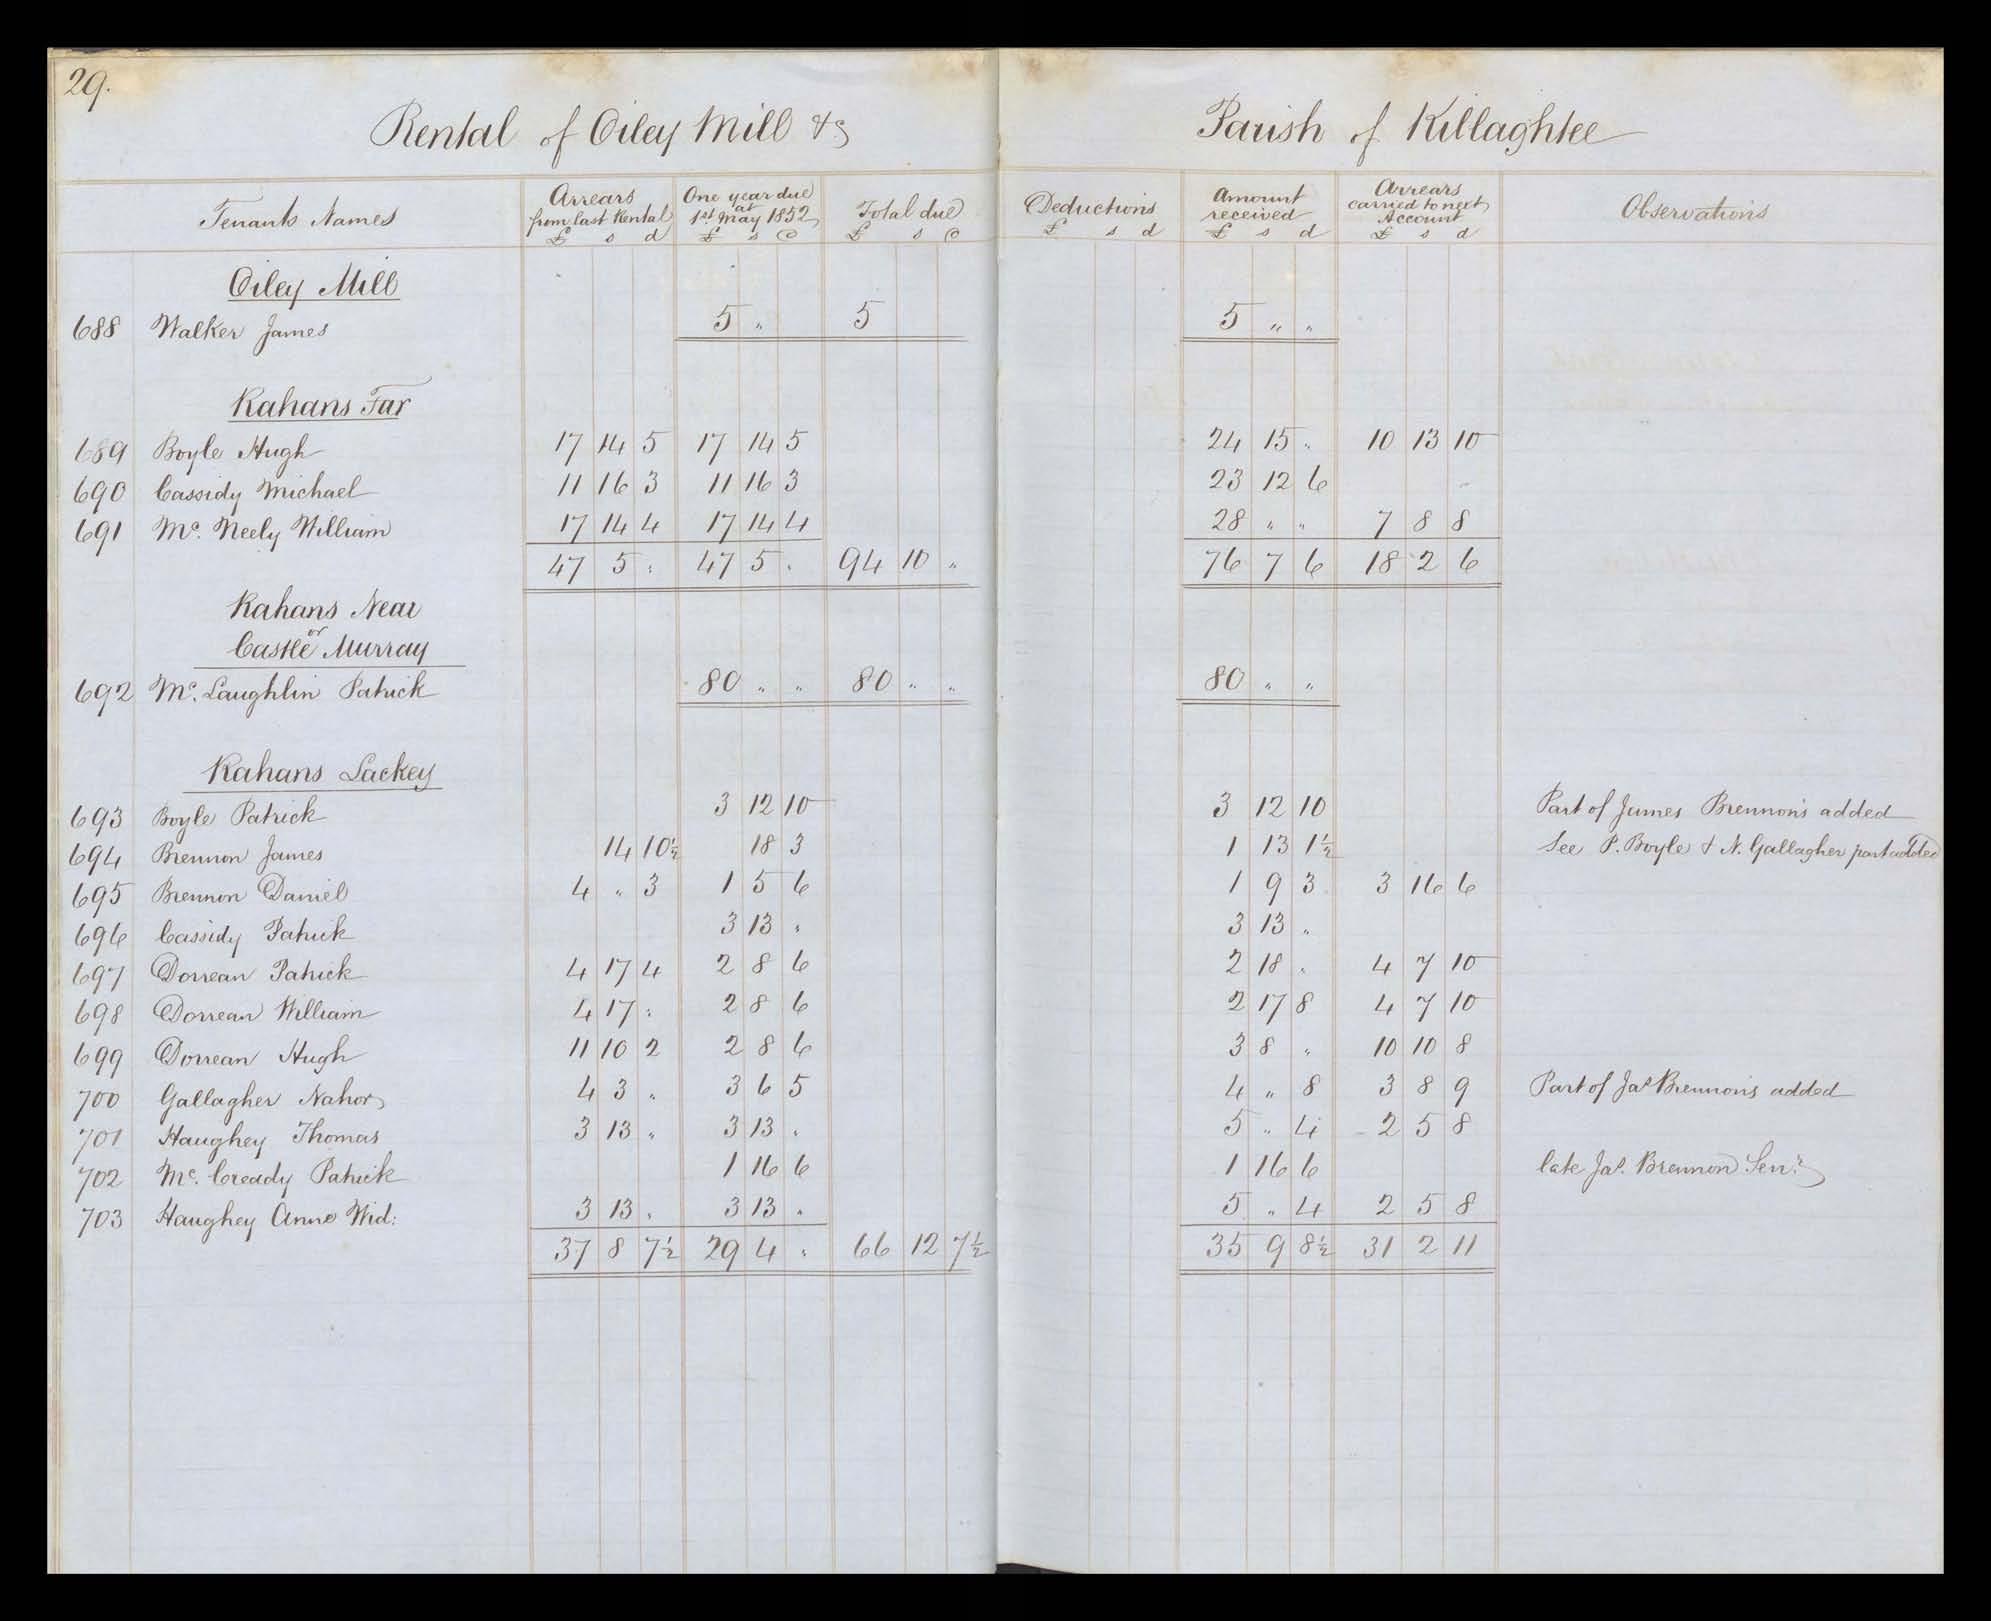 29.
Rental of Oiley Mill &c Parish of Killaghtee
Tenants Names | Arrears from last Rental £ s d | One year due at 1st May 1852 £ s d | Total due £ s d | Deductions £ s d | Amount received £ s d | Arrears carried to next Account £ s d | Observations
Oiley Mill
688 Walker James 5 " 5 5 " "
Kahans Far
689 Boyle Hugh 17 14 5 17 14 5 24 15 " 10 13 10
690 Cassidy Michael 11 16 3 11 16 3 23 12 6
691 Mc. Neely William 17 14 4 17 14 4 28 " " 7 8 8
47 5 " 47 5 " 94 10 " 76 7 6 18 2 6
Kahans Near
or
Castle Murray
692 Mc. Laughlin Patrick 80 " " 80 " " 80 " "
Kahans Lackey
693 Boyle Patrick 3 12 10 3 12 10 Part of James Brennon's added
694 Brennon James 14 10½ 18 3 1 13 1½ See P. Boyle & N. Gallagher part added
695 Brennon Daniel 4 " 3 1 5 6 1 9 3 3 16 6
696 Cassidy Patrick 3 13 " 3 13 "
697 Dorrean Patrick 4 17 4 2 8 6 2 18 " 4 7 10
698 Dorrean William 4 17 " 2 8 6 2 17 8 4 7 10
699 Dorrean Hugh 11 10 2 2 8 6 3 8 " 10 10 8
700 Gallagher Nahor 4 3 " 3 6 5 4 " 8 3 8 9 Part of Jas Brennon's added
701 Haughey Thomas 3 13 " 3 13 " 5 " 4 2 5 8
702 Mc. Cready Patrick 1 16 6 1 16 6 late Jas. Brennon Senr.
703 Haughey Anne Wid: 3 13 " 3 13 " 5 " 4 2 5 8
37 8 7½ 29 4 " 66 12 7½ 35 9 8½ 31 2 11